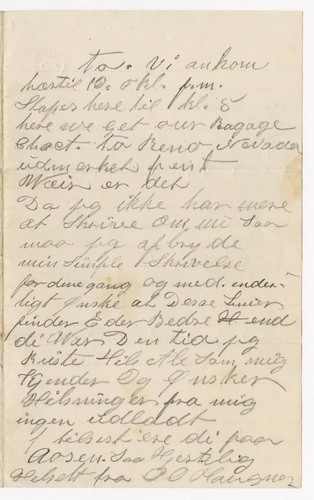 to. Vi ankom
hærtil 10. okl. p.m.
Stapes here til kl. 5
here we get our Bagage
Chæct. to Reno, Nevada
udmerket pent
Wæir er det
Da jeg ikke har mere
at Skrive Om, nu Saa
maa jeg afbryde
min Simple Skrivelse
for denegang og med. ender-
ligt Ønske at Desse Linier
finder Eder Bedre End
di War Den tid jeg
Rejste Hils Alle Som mig
Kjender Og Ønsker
Hilsninger fra mig
ingen udladt
I tilsist ere di paa
Aasen. Saa Hjertelig
Helsett fra O Haugner